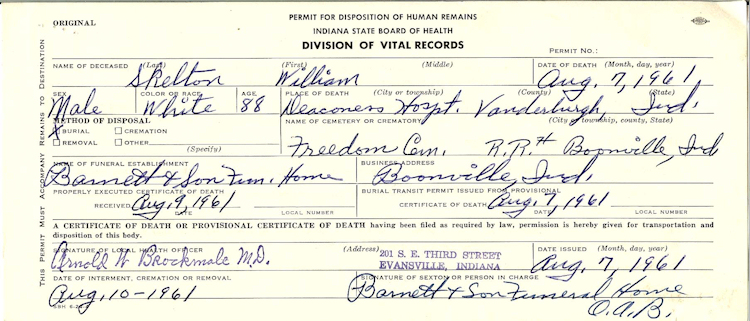 ORIGINAL
PERMIT FOR DISPOSITION OF HUMAN REMAINS
INDIANA STATE BOARD OF HEALTH
DIVISION OF VITAL RECORDS
PERMIT NO.:
NAME OF DECEASED (Last) (First) (Middle) DATE OF DEATH (Month, day, year)
Skelton William Aug. 7, 1961
SEX COLOR OR RACE AGE PLACE OF DEATH (City or township) (County) (State)
Male White 88 Deaconess Hospt. Vanderburgh, Ind.
METHOD OF DISPOSAL NAME OF CEMETERY OR CREMATORY (City or township, county, State)
X BURIAL CREMATION
REMOVAL OTHER
(Specify)
Freedom Cem. R.R.# Boonville, Ind
NAME OF FUNERAL ESTABLISHMENT BUSINESS ADDRESS
Barnett & Son Fun. Home Boonville, Ind.
PROPERLY EXECUTED CERTIFICATE OF DEATH BURIAL TRANSIT PERMIT ISSUED FROM PROVISIONAL
RECEIVED Aug. 9, 1961 CERTIFICATE OF DEATH Aug. 7, 1961
DATE LOCAL NUMBER DATE LOCAL NUMBER
A CERTIFICATE OF DEATH OR PROVISIONAL CERTIFICATE OF DEATH having been filed as required by law, permission is hereby given for transportation and
disposition of this body.
SIGNATURE OF LOCAL HEALTH OFFICER (Address) DATE ISSUED (Month, day, year)
Arnold W Brockmole M.D. 201 S. E. THIRD STREET
EVANSVILLE, INDIANA Aug. 7, 1961
DATE OF INTERMENT, CREMATION OR REMOVAL SIGNATURE OF SEXTON OR PERSON IN CHARGE
Aug. 10-1961 Barnett & Son Funeral Home
O.A.B.
THIS PERMIT MUST ACCOMPANY REMAINS TO DESTINATION